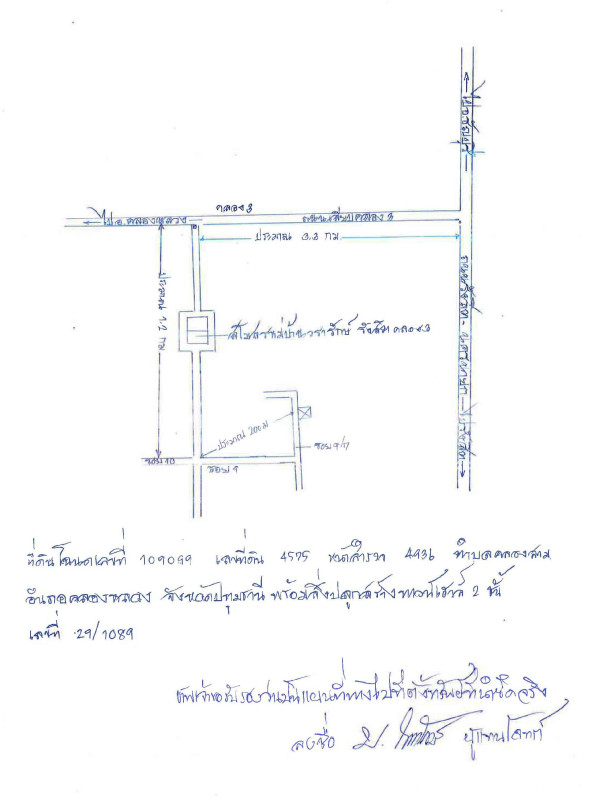 คลอง 3
ไป อ.คลองหลวง
ถนนเลียบคลอง 3
ประมาณ 3.3 กม
ประมาณ 1.2 กม
สโมสรหมู่บ้านวรารักษ์ รังสิต คลอง 3
ประมาณ 200 ม
ซอย 9/17
ซอย 10
ซอย 9
ถนนรังสิต - นครนายก
ไปรังสิต
ที่ดินโฉนดเลขที่ 109099 เลขที่ดิน 4575 หน้าสำรวจ 4936 ตำบลคลองสาม
อำเภอคลองหลวง จังหวัดปทุมธานี พร้อมสิ่งปลูกสร้างทาวน์เฮาส์ 2 ชั้น
เลขที่ 29/1089
ข้าพเจ้าขอรับรองว่าเป็นแผนที่ทางไปที่ตั้งทรัพย์ที่นำยึดจริง
ลงชื่อ ผู้แทนโจทก์